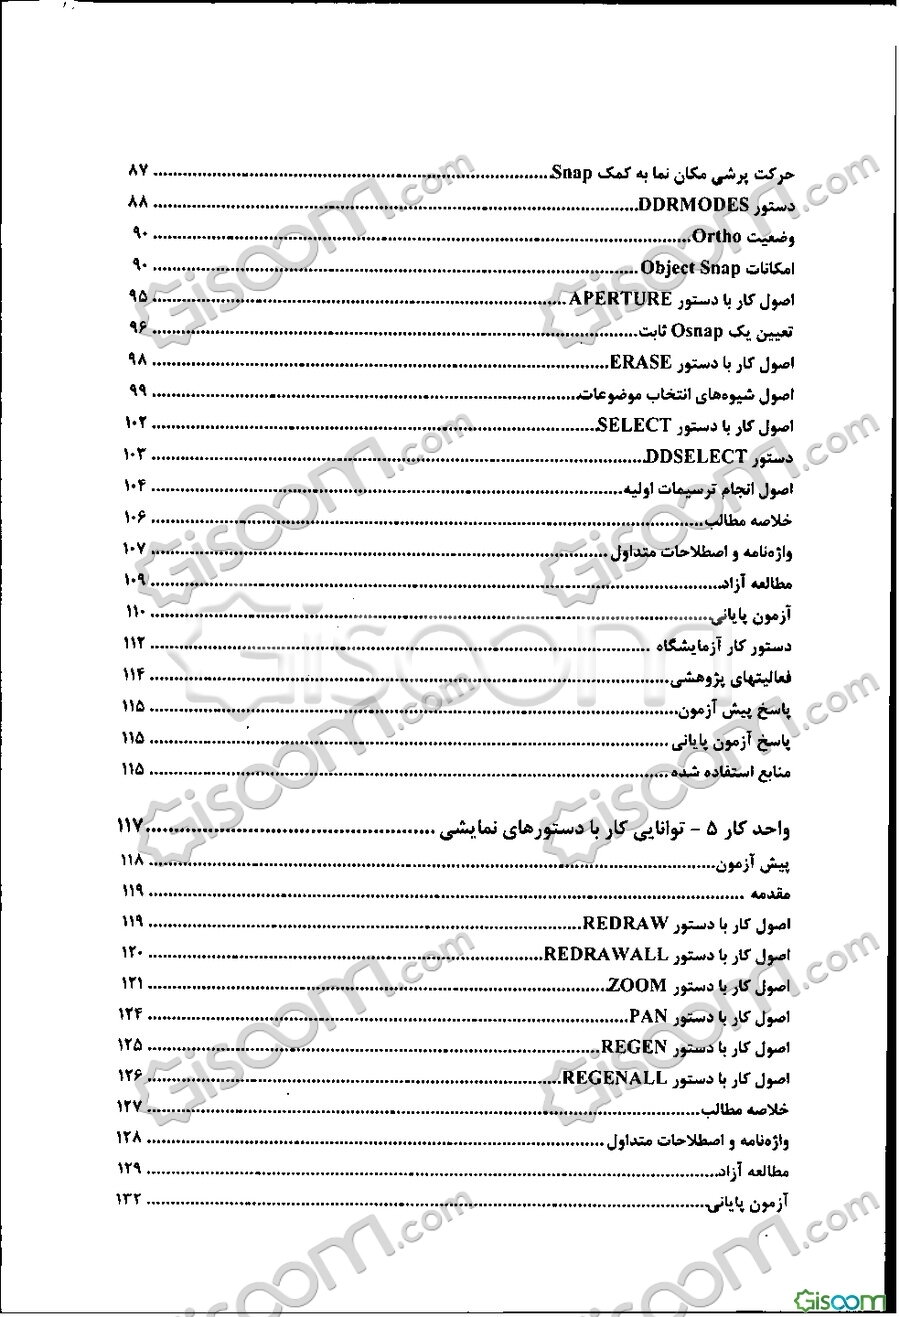 حرکت پرشی مکان نما به کمک Snap ........ ۸۷
دستور DDRMODES ........ ۸۸
وضعیت Ortho ........ ۹۰
امکانات Object Snap ........ ۹۰
اصول کار با دستور APERTURE ........ ۹۵
تعیین یک Osnap ثابت ........ ۹۶
اصول کار با دستور ERASE ........ ۹۸
اصول شیوه‌های انتخاب موضوعات ........ ۹۹
اصول کار با دستور SELECT ........ ۱۰۲
دستور DDSELECT ........ ۱۰۳
اصول انجام ترسیمات اولیه ........ ۱۰۴
خلاصه مطالب ........ ۱۰۶
واژه‌نامه و اصطلاحات متداول ........ ۱۰۷
مطالعه آزاد ........ ۱۰۹
آزمون پایانی ........ ۱۱۰
دستور کار آزمایشگاه ........ ۱۱۲
فعالیتهای پژوهشی ........ ۱۱۴
پاسخ پیش آزمون ........ ۱۱۵
پاسخ آزمون پایانی ........ ۱۱۵
منابع استفاده شده ........ ۱۱۵
واحد کار ۵ - توانایی کار با دستورهای نمایشی ........ ۱۱۷
پیش آزمون ........ ۱۱۸
مقدمه ........ ۱۱۹
اصول کار با دستور REDRAW ........ ۱۱۹
اصول کار با دستور REDRAWALL ........ ۱۲۰
اصول کار با دستور ZOOM ........ ۱۲۱
اصول کار با دستور PAN ........ ۱۲۴
اصول کار با دستور REGEN ........ ۱۲۵
اصول کار با دستور REGENALL ........ ۱۲۶
خلاصه مطالب ........ ۱۲۷
واژه‌نامه و اصطلاحات متداول ........ ۱۲۸
مطالعه آزاد ........ ۱۲۹
آزمون پایانی ........ ۱۳۲
Gisoom